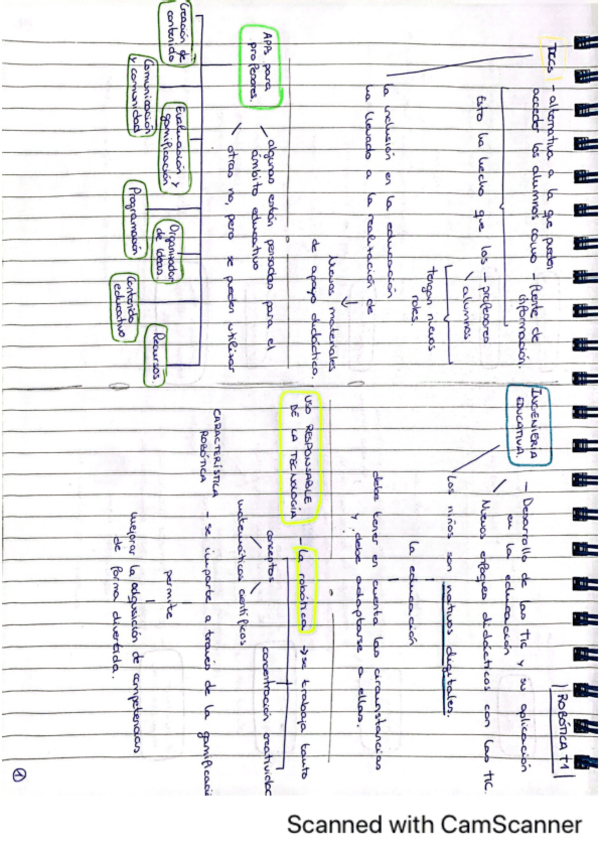 ROBÓTICA T1
TICS - alternativa a la que pueden
acceder los alumnos como - fuente de
información.
Esto ha hecho que los - profesores
\ alumnos
tengan nuevos
roles.
La inclusión en la educación
ha llevado a la realización de
Nuevos materiales
de apoyo didáctico.
APPs para
profesores
/ algunas están pensadas para el
ámbito educativo
\ otras no, pero se pueden utilizar
Creación de
contenido
Comunicación
y comunidad
Evaluación y
gamificación
Programación
Organizador
de ideas
Contenido
educativo
Recursos
INGENIERIA
EDUCATIVA.
- Desarrollo de las TIC y su aplicación
en la educación
\ Nuevos enfoques didácticos con las TIC.
Los niños son nativos digitales.
La educación
debe tener en cuenta las circunstancias
y debe adaptarse a ellas.
USO RESPONSABLE
DE LA TECNOLOGÍA
- La robótica → se trabaja tanto
conceptos
concentración creatividad
matemáticos científicos
CARACTERÍSTICA
ROBÓTICA
- se imparte a través de la gamificaci
permite
mejorar la adquisición de competencias
de forma divertida.
1
Scanned with CamScanner